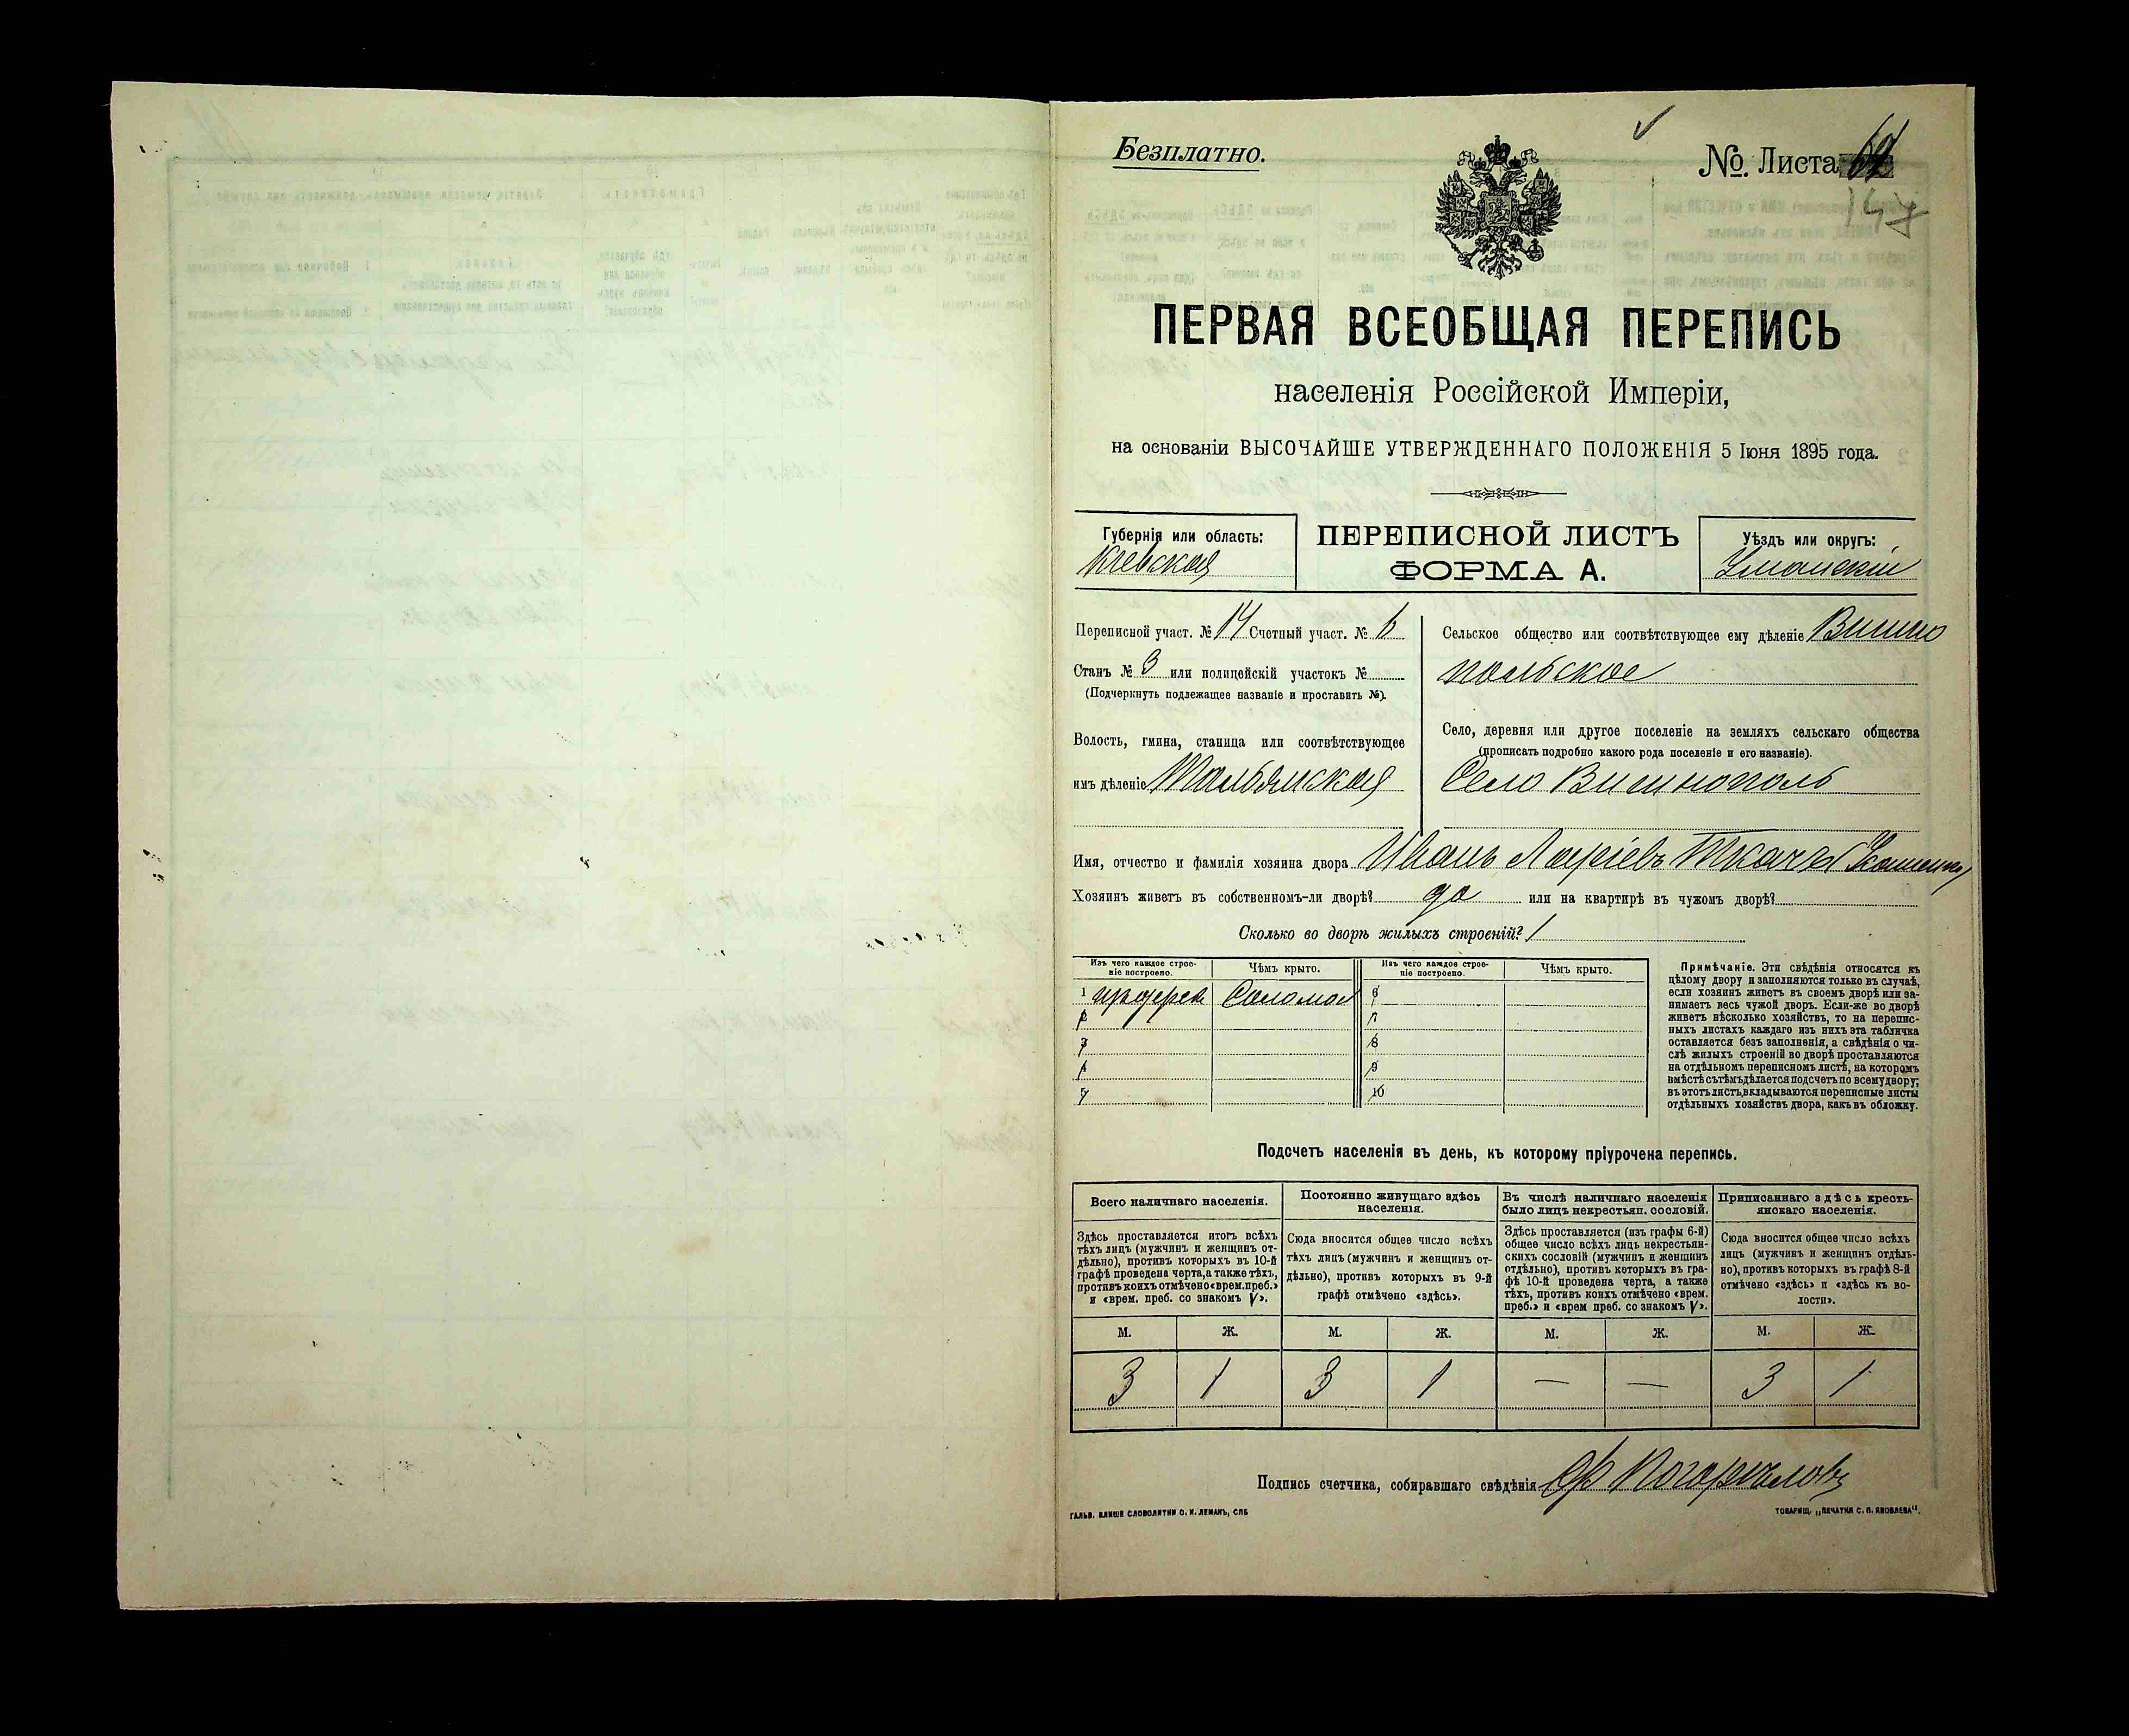 Безплатно.
№ Листа
147
ПЕРВАЯ ВСЕОБЩАЯ ПЕРЕПИСЬ
населенія Россійской Имперіи,
на основаніи ВЫСОЧАЙШЕ УТВЕРЖДЕННАГО ПОЛОЖЕНІЯ 5 Іюня 1895 года.
Губернія или область:
Кіевская
ПЕРЕПИСНОЙ ЛИСТЪ
ФОРМА А.
Уѣздъ или округъ:
Уманскій
Переписной участ. № 14 Счетный участ. № 6
Станъ № 3 или полицейскій участокъ №
(Подчеркнуть подлежащее названіе и проставить №).
Волость, гмина, станица или соотвѣтствующее
имъ дѣленіе Тальянская
Сельское общество или соотвѣтствующее ему дѣленіе Вишно
польское
Село, деревня или другое поселеніе на земляхъ сельскаго общества
(прописать подробно какого рода поселеніе и его названіе).
Село Вишнополь
Имя, отчество и фамилія хозяина двора Иванъ Ларіевъ Ткачъ
Хозяинъ живетъ въ собственномъ-ли дворѣ? да или на квартирѣ въ чужомъ дворѣ?
Сколько во дворѣ жилыхъ строеній? 1
Изъ чего каждое строе-
ніе построено.
Чѣмъ крыто.
Изъ чего каждое строе-
ніе построено.
Чѣмъ крыто.
1 изъ дерева Соломой 6
2 7
3 8
4 9
5 10
Примѣчаніе. Эти свѣдѣнія относятся къ
цѣлому двору и заполняются только въ случаѣ,
если хозяинъ живетъ въ своемъ дворѣ или за-
нимаетъ весь чужой дворъ. Если-же во дворѣ
живетъ нѣсколько хозяйствъ, то на перепис-
ныхъ листахъ каждаго изъ нихъ эта табличка
оставляется безъ заполненія, а свѣдѣнія о чи-
слѣ жилыхъ строеній во дворѣ проставляются
на отдѣльномъ переписномъ листѣ, на которомъ
вмѣстѣ съ тѣмъ дѣлается подсчетъ по всему двору;
въ этотъ листъ вкладываются переписные листы
отдѣльныхъ хозяйствъ двора, какъ въ обложку.
Подсчетъ населенія въ день, къ которому пріурочена перепись.
Всего наличнаго населенія.
Здѣсь проставляется итогъ всѣхъ
тѣхъ лицъ (мужчинъ и женщинъ от-
дѣльно), противъ которыхъ въ 10-й
графѣ проведена черта, а также тѣхъ,
противъ коихъ отмѣчено «врем. преб.»
и «врем. преб. со знакомъ V».
Постоянно живущаго здѣсь
населенія.
Сюда вносится общее число всѣхъ
тѣхъ лицъ (мужчинъ и женщинъ от-
дѣльно), противъ которыхъ въ 9-й
графѣ отмѣчено «здѣсь».
Въ числѣ наличнаго населенія
было лицъ некрестьян. сословій.
Здѣсь проставляется (изъ графы 6-й)
общее число всѣхъ лицъ некрестьян-
скихъ сословій (мужчинъ и женщинъ
отдѣльно), противъ которыхъ въ гра-
фѣ 10-й проведена черта, а также
тѣхъ, противъ коихъ отмѣчено «врем.
преб.» и «врем преб. со знакомъ V».
Приписаннаго здѣсь кресть-
янскаго населенія.
Сюда вносится общее число всѣхъ
лицъ (мужчинъ и женщинъ отдѣль-
но), противъ которыхъ въ графѣ 8-й
отмѣчено «здѣсь» и «здѣсь къ во-
лости».
М. Ж. М. Ж. М. Ж. М. Ж.
3 1 3 1 — — 3 1
Подпись счетчика, собиравшаго свѣдѣнія Погорѣловъ
ГАЛЬВ. КЛИШЕ СЛОВОЛИТНИ О. И. ЛЕМАНЪ, СПБ
ТОВАРИЩ. „ПЕЧАТНЯ С. П. ЯКОВЛЕВА".